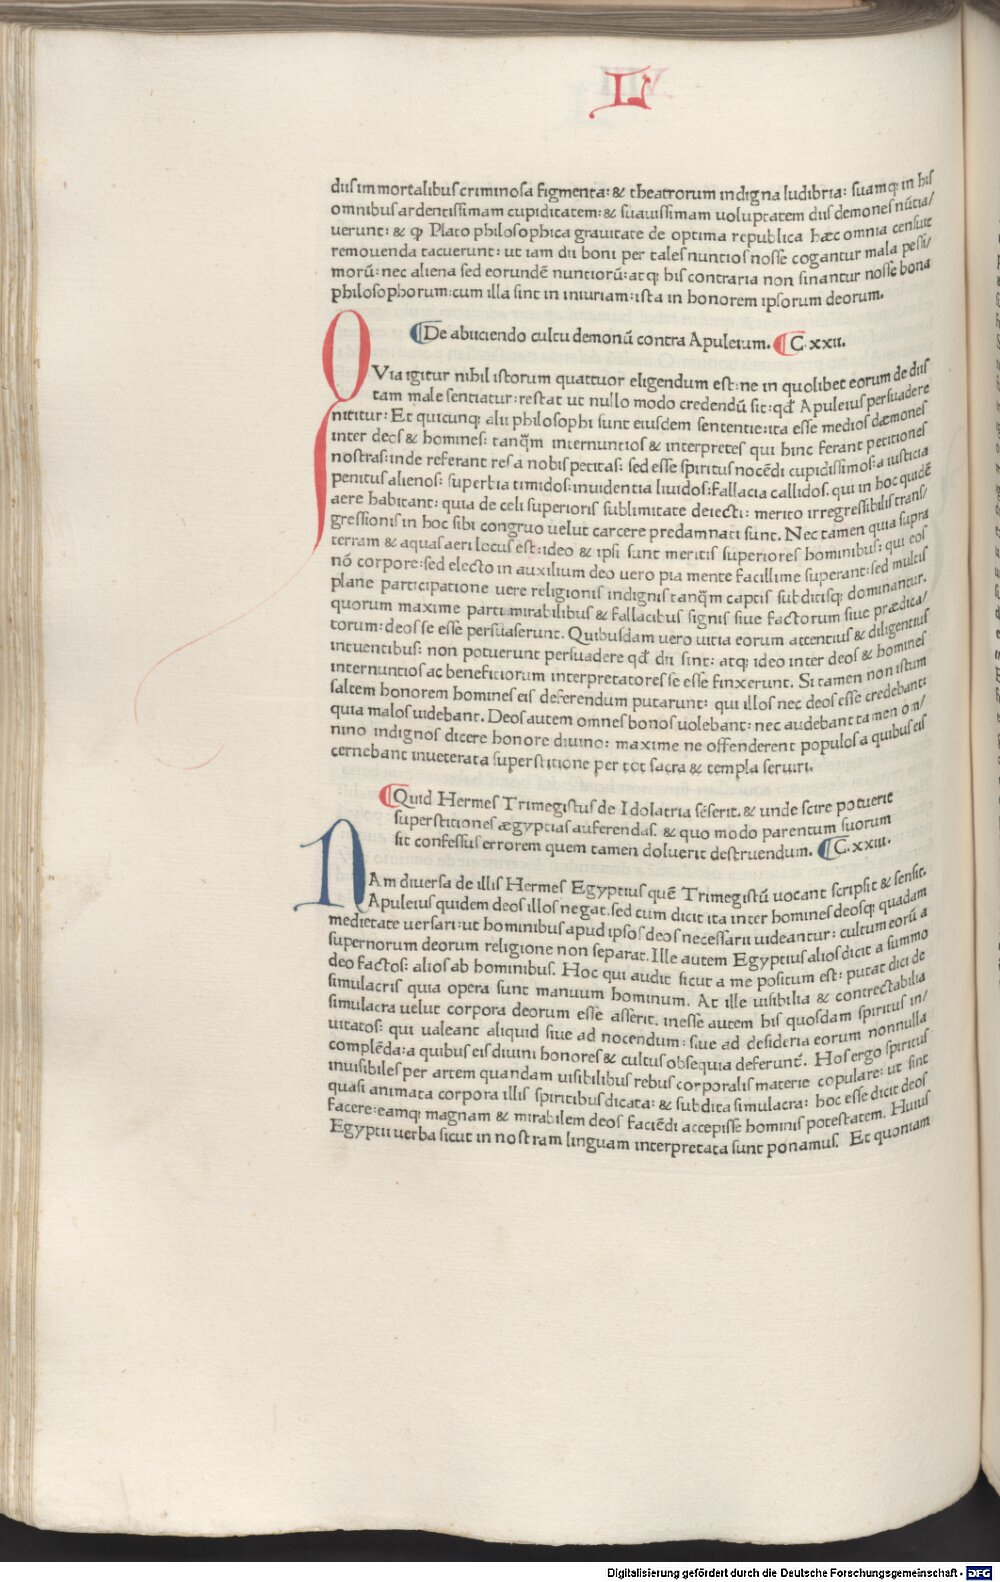 L
diis immortalibus criminosa figmenta: & theatrorum indigna ludibria: suamq; in his
omnibus ardentissimam cupiditatem: & suauissimam uoluptatem diis demones nūtia/
uerunt: & ꝙ Plato philosophica grauitate de optima republica hæc omnia censuit
remouenda tacuerunt: ut iam dii boni per tales nuntios nosse cogantur mala pessi/
morū: nec aliena sed eorundē nuntiorū: atq; his contraria non sinantur nosse bona
philosophorum: cum illa sint in iniuriam: ista in honorem ipsorum deorum.
De abiiciendo cultu demonū contra Apuleium. C. xxii.
QVia igitur nihil istorum quattuor eligendum est: ne in quolibet eorum de diis
tam male sentiatur: restat ut nullo modo credendū sit: qđ Apuleius persuadere
nititur: Et quicunq; alii philosophi sunt eiusdem sententie: ita esse medios dæmones
inter deos & homines: tanq̄m internuntios & interpretes qui hinc ferant petitiones
nostras: inde referant res a nobis petitas: sed esse spiritus nocēdi cupidissimos: a iusticia
penitus alienos: superbia timidos: inuidentia liuidos: fallacia callidos. qui in hoc quidē
aere habitant: quia de celi superioris sublimitate deiecti: merito irregressibilis trans/
gressionis in hoc sibi congruo uelut carcere predamnati sunt. Nec tamen quia supra
terram & aquas aeri locus est: ideo & ipsi sunt meritis superiores hominibus: qui eos
nō corpore: sed electo in auxilium deo uero pia mente facillime superant: sed multis
plane participatione uere religionis indignis tanq̄m captis subditisq; dominantur.
quorum maxime parti mirabilibus & fallacibus signis siue factorum siue prædica/
torum: deos se esse persuaserunt. Quibusdam uero uitia eorum attentius & diligentius
intuentibus: non potuerunt persuadere qđ dii sint: atq; ideo inter deos & homines
internuntios ac beneficiorum interpretatores se esse finxerunt. Si tamen non istum
saltem honorem homines eis deferendum putarunt: qui illos nec deos esse credebant
quia malos uidebant. Deos autem omnes bonos uolebant: nec audebant tamen om/
nino indignos dicere honore diuino: maxime ne offenderent populos a quibus eis
cernebant inueterata superstitione per tot sacra & templa seruiri.
Quid Hermes Trimegistus de Idolatria sēserit. & unde scire potuerit
superstitiones ægyptias auferendas. & quo modo parentum suorum
sit confessus errorem quem tamen doluerit destruendum. C. xxiii.
NAm diuersa de illis Hermes Egyptius quē Trimegistū uocant scripsit & sensit.
Apuleius quidem deos illos negat. sed cum dicit ita inter homines deosq; quadam
medietate uersari: ut hominibus apud ipsos deos necessarii uideantur: cultum eorū a
supernorum deorum religione non separat. Ille autem Egyptius alios dicit a summo
deo factos: alios ab hominibus. Hoc qui audit sicut a me positum est: putat dici de
simulacris quia opera sunt manuum hominum. At ille uisibilia & contrectabilia
simulacra uelut corpora deorum esse asserit. inesse autem his quosdam spiritus in/
uitatos: qui ualeant aliquid siue ad nocendum: siue ad desideria eorum nonnulla
complēda: a quibus eis diuini honores & cultus obsequia deferunt̄. Hos ergo spiritus
inuisibiles per artem quandam uisibilibus rebus corporalis materie copulare: ut sint
quasi animata corpora illis spiritibus dicata: & subdita simulacra: hoc esse dicit deos
facere: eamq; magnam & mirabilem deos faciēdi accepisse hominis potestatem. Huius
Egyptii uerba sicut in nostram linguam interpretata sunt ponamus. Et quoniam
Digitalisierung gefördert durch die Deutsche Forschungsgemeinschaft - DFG